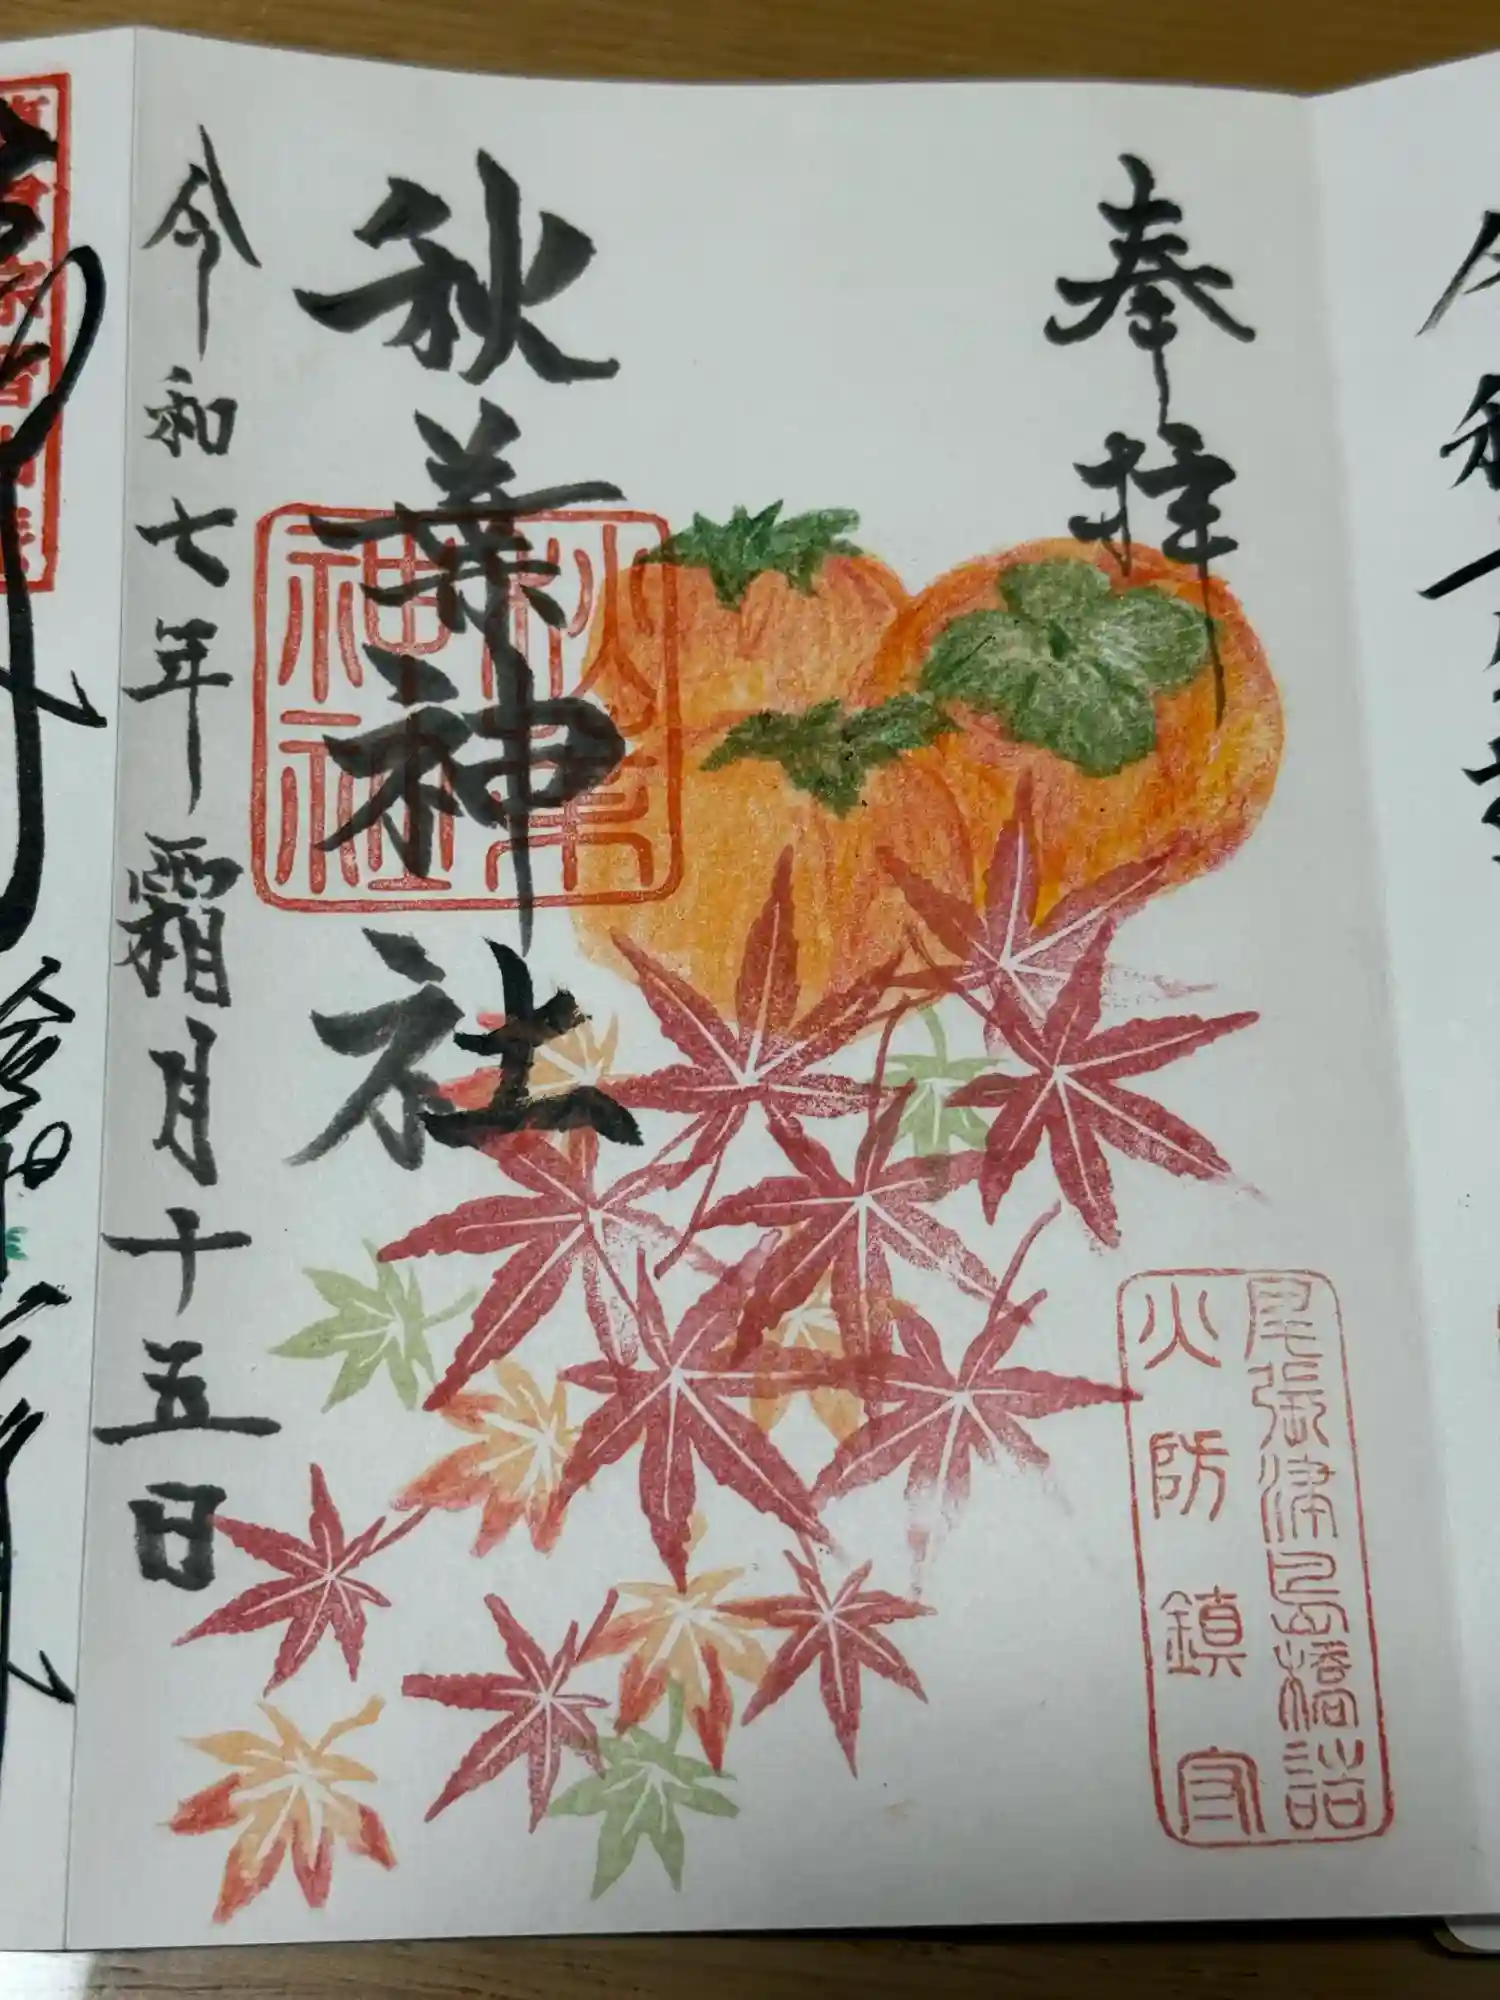 奉拝
秋葉神社
令和七年霜月十五日
秋葉
神社
尾張津島橋詰
火防鎮守